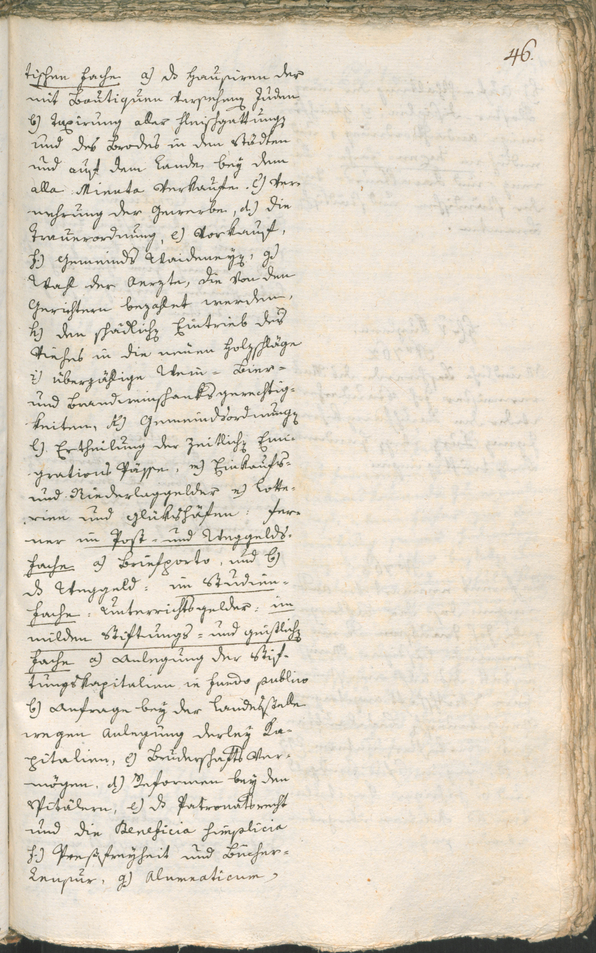 46.
tischen Fache a) ds Hausiren der
mit Boutiquen versehenen Juden
b) Taxirung aller Fleischgattungen
und des Brodes in den Städten
und auf dem Lande, bey dem
alla Minuta Verkaufe. c) Ver-
mehrung der Gewerbe, d) die
Trauerordnung, e) Vorkauf,
f) Gemeinds Waiderey, g)
Wahl der Aerzte, die von den
Gerichtern bezahlet werden,
h) den schädlichen Eintrieb des
Viehes in die neuen Holzschläge
i) überzählige Wein- Bier-
und Brandweinschanksgerechtig-
keiten, k) Gemeindsordnungen
l) Ertheilung der zeitlichen Emi-
grations Pässe, m) Einkaufs-
und Niederlaggelder n) Lotte-
rien und Glückshäfen: fer-
ner im Post- und Weggelds-
fache a) Briefporto, und b)
ds Weggeld: im Studien-
fache: Unterrichtsgelder: im
milden Stiftungs- und geistlichen
Fache a) Anlegung der Stif-
tungskapitalien in fundo publico
b) Anfrage bey der Landesstelle
wegen Anlegung derley Ka-
pitalien, c) Bruderschafts Ver-
mögen, d) Reformen bey den
Spitälern, e) ds Patronatsrecht
und die Beneficia simplicia
f) Preßfreyheit und Bücher-
Zensur, g) Alumnaticum,